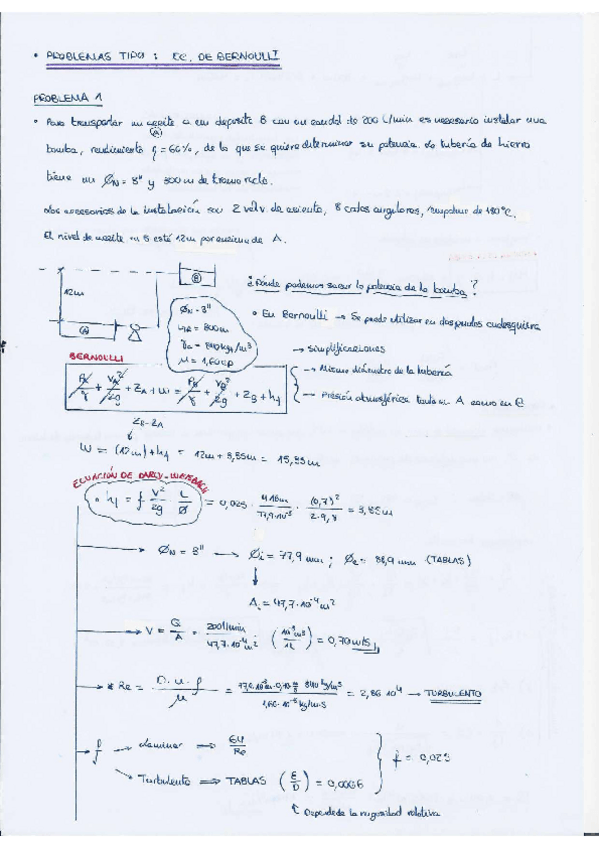 • PROBLEMAS TIPO : EC. DE BERNOULLI
PROBLEMA 1
• Para transportar un aceite a un deposito B con un caudal de 200 L/min es necesario instalar una
(A)
bomba, rendimiento η = 66%, de la que se quiere determinar su potencia. La tubería de hierro
tiene un ØN = 3" y 300 m de tramo recto.
Los accesorios de la instalación son 2 válv. de asiento, 8 codos angulares, 1 de 180°C.
El nivel de aceite en B está 12m por encima de A.
B
12m
A
ØN = 3"
= 300m
= 840 kg/m³
μ = 1,60 cp
¿Dónde podemos sacar la potencia de la bomba?
• En Bernoulli → Se puede utilizar en dos puntos cualesquiera
→ simplificaciones
→ Mismo diámetro de la tubería
→ Presión atmosférica tanto en A como en B
BERNOULLI
PA/γ + VA²/2g + ZA + W = PB/γ + VB²/2g + ZB + hf
ZB - ZA
W = (12m) + hf = 12m + 3,85m = 15,85m
ECUACIÓN DE DARCY-WEISBACH
• hf = f V²/2g · L/Ø = 0,025 · 416m/77,9·10⁻³ · (0,7)²/2·9,8 = 3,85m
→ ØN = 3" → Øi = 77,9 mm ; Øe = 88,9 mm (TABLAS)
A = 47,7·10⁻⁴ m²
→ V = Q/A = 200 l/min / 47,7·10⁻⁴ m² (10⁻³ m³/1L) = 0,70 m/s
→ * Re = D·u·ρ/μ = 77,9·10⁻³ m · 0,70 m/s · 840 kg/m³ / 1,60·10⁻³ kg/m·s = 2,86 10⁴ → TURBULENTO
→ f → Laminar ⇒ 64/Re
→ Turbulento ⇒ TABLAS (ε/D) = 0,0006
f = 0,025
↑ Depende de la rugosidad relativa